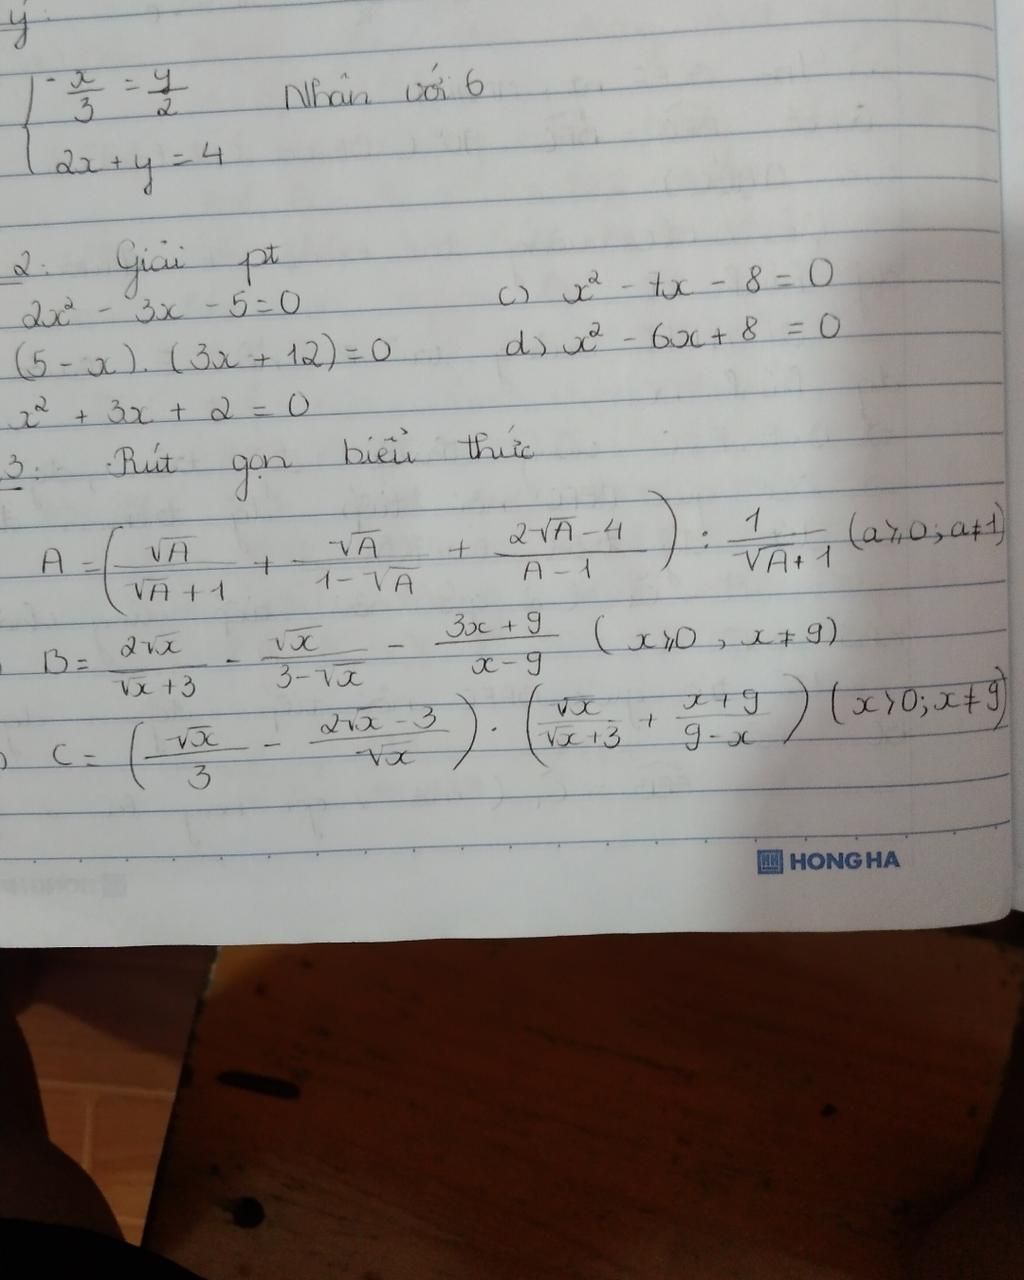 y
{ - x/3 = y/2 Nhân với 6
2x + y = 4
2: Giải pt
2x² - 3x - 5 = 0 c) x² - 7x - 8 = 0
(5 - x). (3x + 12) = 0 d) x² - 6x + 8 = 0
x² + 3x + 2 = 0
3: Rút gọn biểu thức
A = (√A/(√A + 1) + √A/(1 - √A) + (2√A - 4)/(A - 1)) : 1/(√A + 1) (a ≥ 0; a ≠ 1)
) B = 2√x/(√x + 3) - √x/(3 - √x) - (3x + 9)/(x - 9) (x ≥ 0, x ≠ 9)
) C = (√x/3 - (2√x - 3)/√x) . (√x/(√x + 3) + (x + 9)/(9 - x)) (x > 0; x ≠ 9)
HH HONG HA